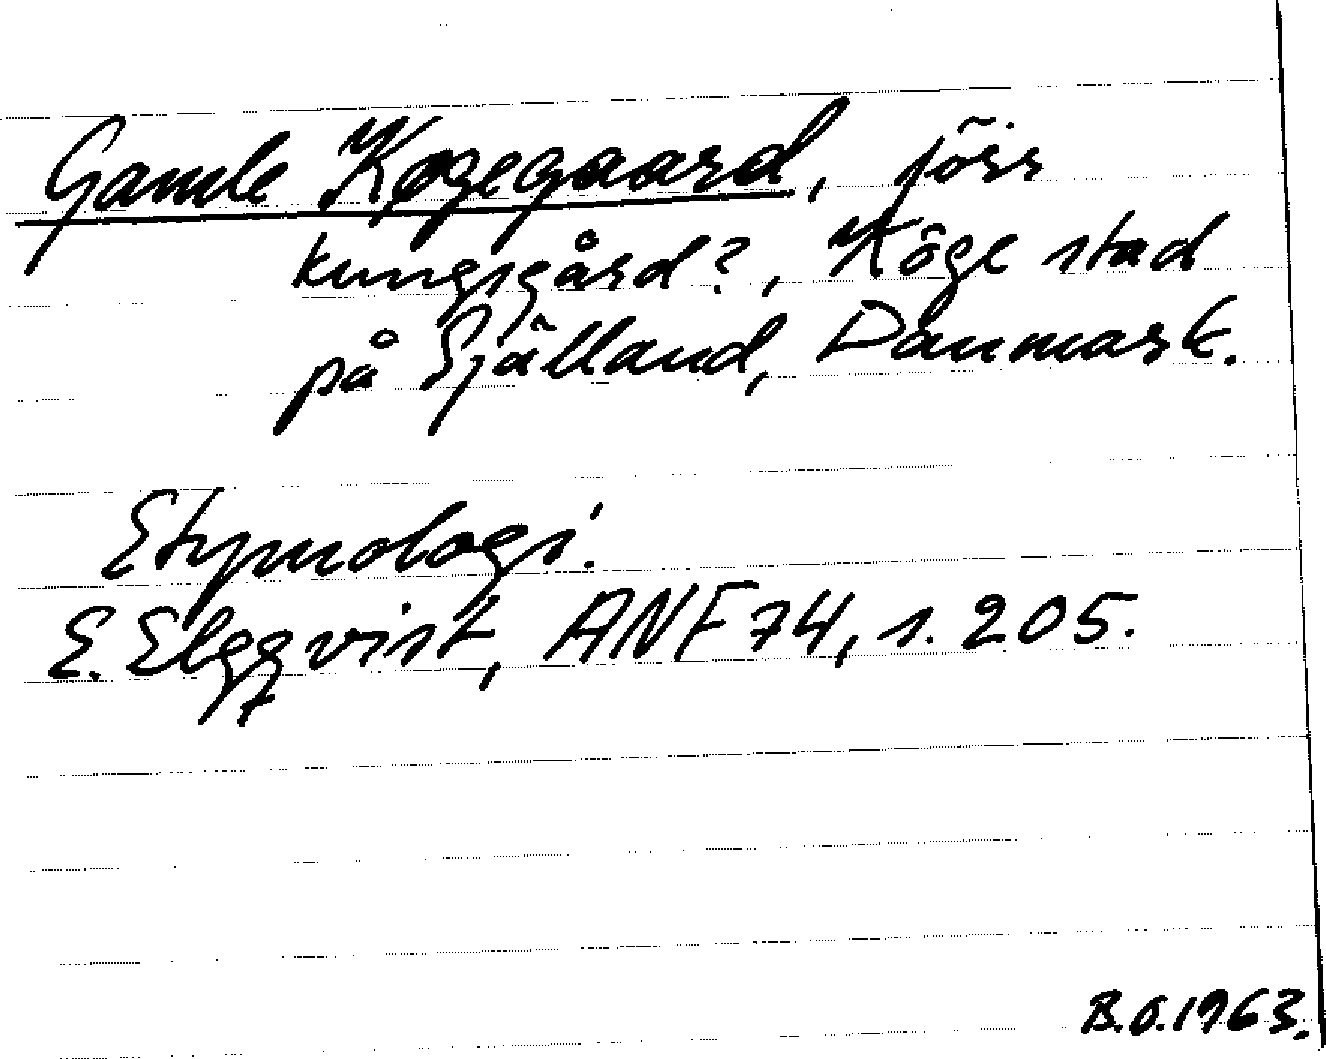 Gamle Køgegaard, förr
kungsgård?, Köge stad
på Själland, Danmark.
Etymologi:
E. Elgqvist, ANF 74, s. 205.
B.O.1963.